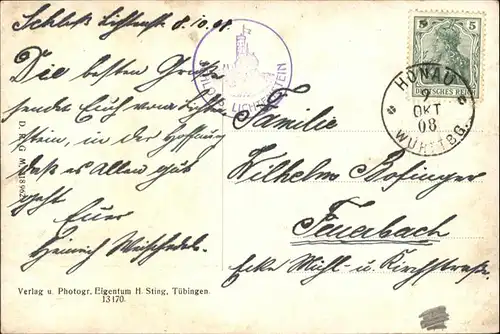 Schloß Lichtenst. 8.10.08.
Die besten Grüße
sendet Euch vom Lichten
stein, in der Hoffnung
daß es Allen gut
geht
Euer
Heinrich
SCHLOSS LICHTENSTEIN
5 5
DEUTSCHES REICH
HONAU
9
OKT
08
WÜRTTBG.
Familie
Wilhelm Bofinger
Feuerbach
Ecke Mühl- u. Kirchstraße.
D. R. G. M.
Verlag u. Photogr. Eigentum H. Sting, Tübingen.
13170.